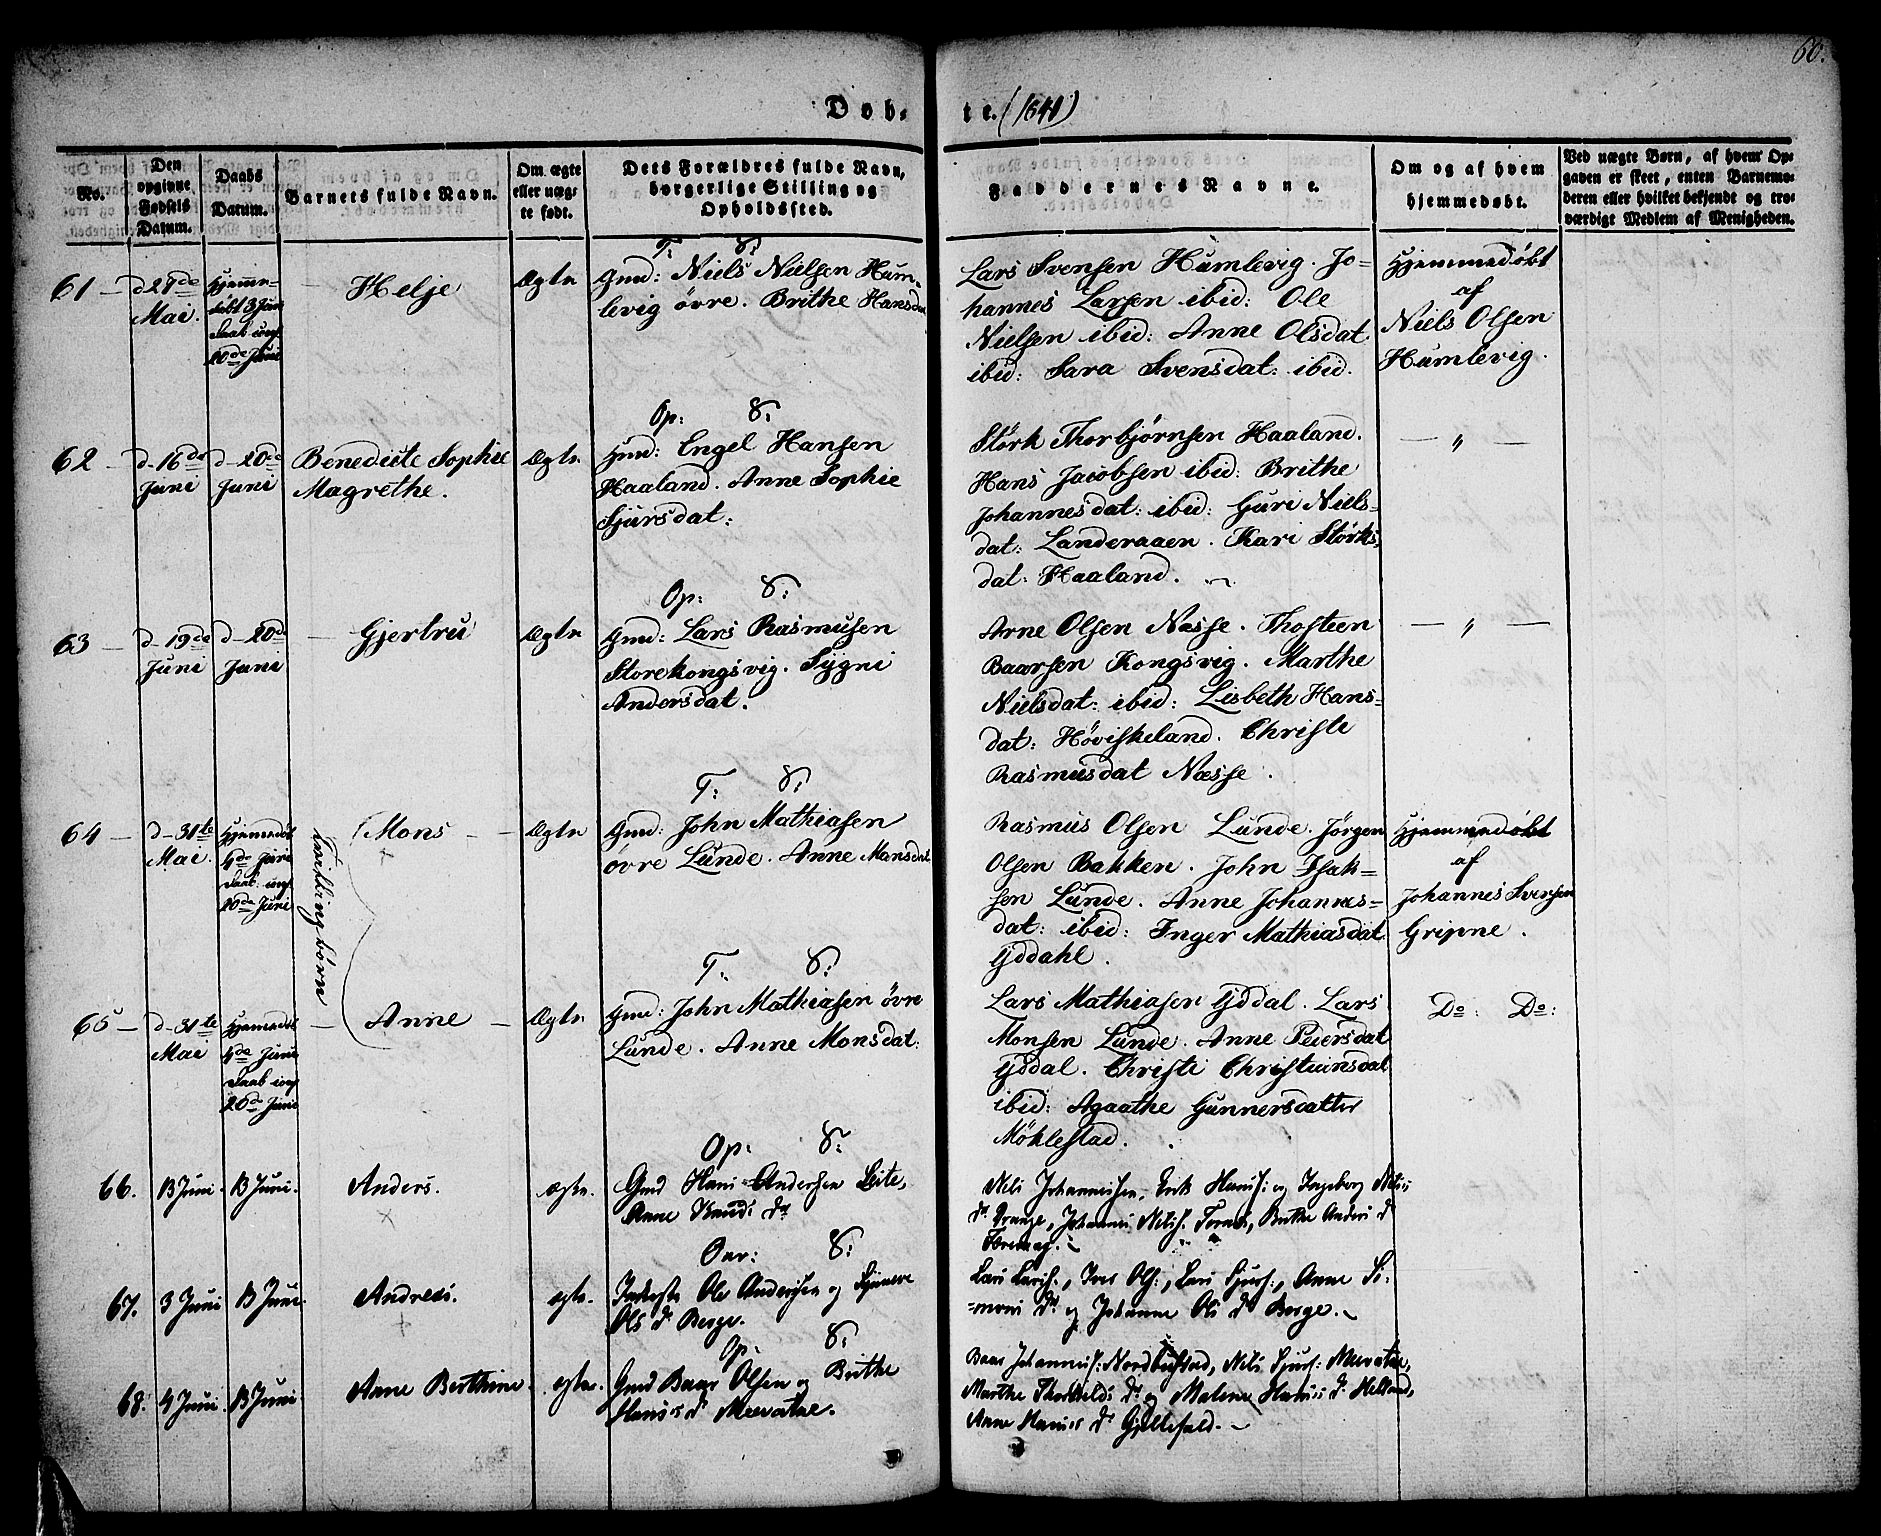 60.
Døb- te. (1841)
No.
Den opgivne Fødsels Datum.
Daabs Datum.
Barnets fulde Navn.
Om ægte eller uægte født.
Dets Forældres fulde Navn, borgerlige Stilling og Opholdssted.
Faddernes Navne.
Om og af hvem hjemmedøbt.
Ved uægte Børn, af hvem Op-
gaven er skeet, enten Barnemo-
deren eller hvilket bekjendt og tro-
værdigt Medlem af Menigheden.
T: S:
61 — d 29de Mai. Hjemme-
døbt 3 Juni
Daab
20de Juni
Helje
Ægte
Gmd: Niels Nielsen Hum-
levig øvre. Brithe Hansdat
Lars Svensen Humlevig. Jo-
hannes Larsen ibid: Ole
Nielsen ibid: Anne Olsdat.
ibid: Sara Svensdat: ibid.
Hjemmedøbt
af
Niels Olsen
Humlevig.
Op: S:
62 — d- 16de Juni d- 20de Juni
Benedicte Sophie
Magrethe.
Ægte
Gmd: Engel Hansen
Haaland. Anne Sophie
Sjursdat:
Størk Thorbjørnsen Haaland.
Hans Jacobsen ibid: Brithe
Johannesdat: ibid: Guri Niels-
dat: Landeraaen. Kari Størks-
dat: Haaland.
— " —
Op: S:
63 — d- 19de Juni d- 20de Juni
Gjertru
Ægte
Gmd: Lars Rasmusen
Storekongsvig. Sygni
Andersdat.
Arne Olsen Næsse. Thosteen
Baarsen Kongsvig. Marthe
Nielsdat: ibid: Lisbeth Hans-
dat: Høviskeland. Christe
Rasmusdat Næsse.
— " —
T: S:
64 — d- 31te Mai. Hjemmedøbt
4de Juni
Daab
20de Juni
Tvilling børn
Mons
Ægte
Gmd: John Mathiasen
øvre Lunde. Anne Monsdat
Rasmus Olsen Lunde. Jørgen
Olsen Bakken. John Isak-
sen Lunde. Anne Johannes-
dat: ibid: Inger Mathiasdat
Yddahl.
Hjemmedøbt
af
Johannes Svensen
Gripne.
T: S:
65 — d- 31te Mai Hjemmedøbt
4de Juni
Daab
20de Juni
Anne
Ægte
Gmd: John Mathiasen øvre
Lunde. Anne Monsdat:
Lars Mathiasen Yddal. Lars
Monsen Lunde. Anne Peiersdat
Yddal. Christi Christiansdat
ibid: Agaathe Gunnersdatter
Møhlestad.
Do: Do:
Op: S:
66. 13 Juni. 13 Juni.
Anders.
ægte.
Gmd Hans Andersen Leite,
Anne Knuds Dr
Nils Johannessen, Erik Hanss: og Ingeborg Nils
Dr Drange, Johannes Nilss. Brithe Anders D
Oar: S:
67. 3 Juni 13 Juni.
Andreas.
ægte.
Inderste Ole Andersen og Synneve
Ols Dr Berge.
Lars Larss., Iver Ols:, Lars Sjurs:, Anne Si-
=mons Dr og Johanne Ols Dr Berge.
Op: S:
68. 4 Juni. 13 Juni
Anne Berthine.
ægte.
Gmd Baar Olsen og Brithe
Hans's Dr Mevatne.
Baar Johanness: Nordbustad, Nils Sjurs: Mevatne,
Marthe Thorkilds Dr og Malene Hans's Dr Helland,
Anne Hans's Dr Gjellefald.